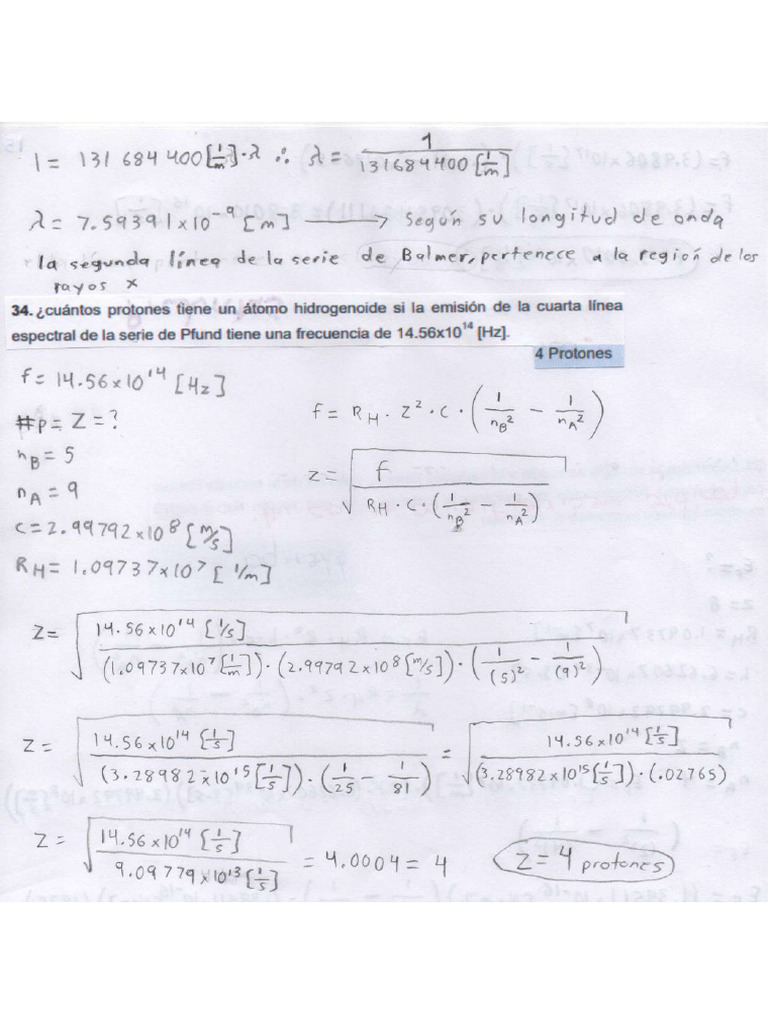 1 = 131 684 400 [1/m]·λ ∴ λ = 1 / 131684400 [1/m]
λ = 7.59391 x 10⁻⁹ [m] ⟶ Según su longitud de onda
la segunda línea de la serie de Balmer, pertenece a la región de los
rayos x
34. ¿cuántos protones tiene un átomo hidrogenoide si la emisión de la cuarta línea
espectral de la serie de Pfund tiene una frecuencia de 14.56x10¹⁴ [Hz].
4 Protones
f = 14.56 x 10¹⁴ [Hz]
#p = Z = ?
n_B = 5
n_A = 9
c = 2.99792 x 10⁸ [m/s]
R_H = 1.09737 x 10⁷ [1/m]
f = R_H · Z² · C · (1/n_B² − 1/n_A²)
z = √(f / (R_H · C · (1/n_B² − 1/n_A²)))
Z = √(14.56 x 10¹⁴ [1/s] / ((1.09737 x 10⁷ [1/m]) · (2.99792 x 10⁸ [m/s]) · (1/(5)² − 1/(9)²)))
Z = √(14.56 x 10¹⁴ [1/s] / ((3.28982 x 10¹⁵ [1/s]) · (1/25 − 1/81))) = √(14.56 x 10¹⁴ [1/s] / ((3.28982 x 10¹⁵ [1/s]) · (.02765)))
Z = √(14.56 x 10¹⁴ [1/s] / 9.09779 x 10¹³ [1/s]) = 4.0004 = 4 Z = 4 protones